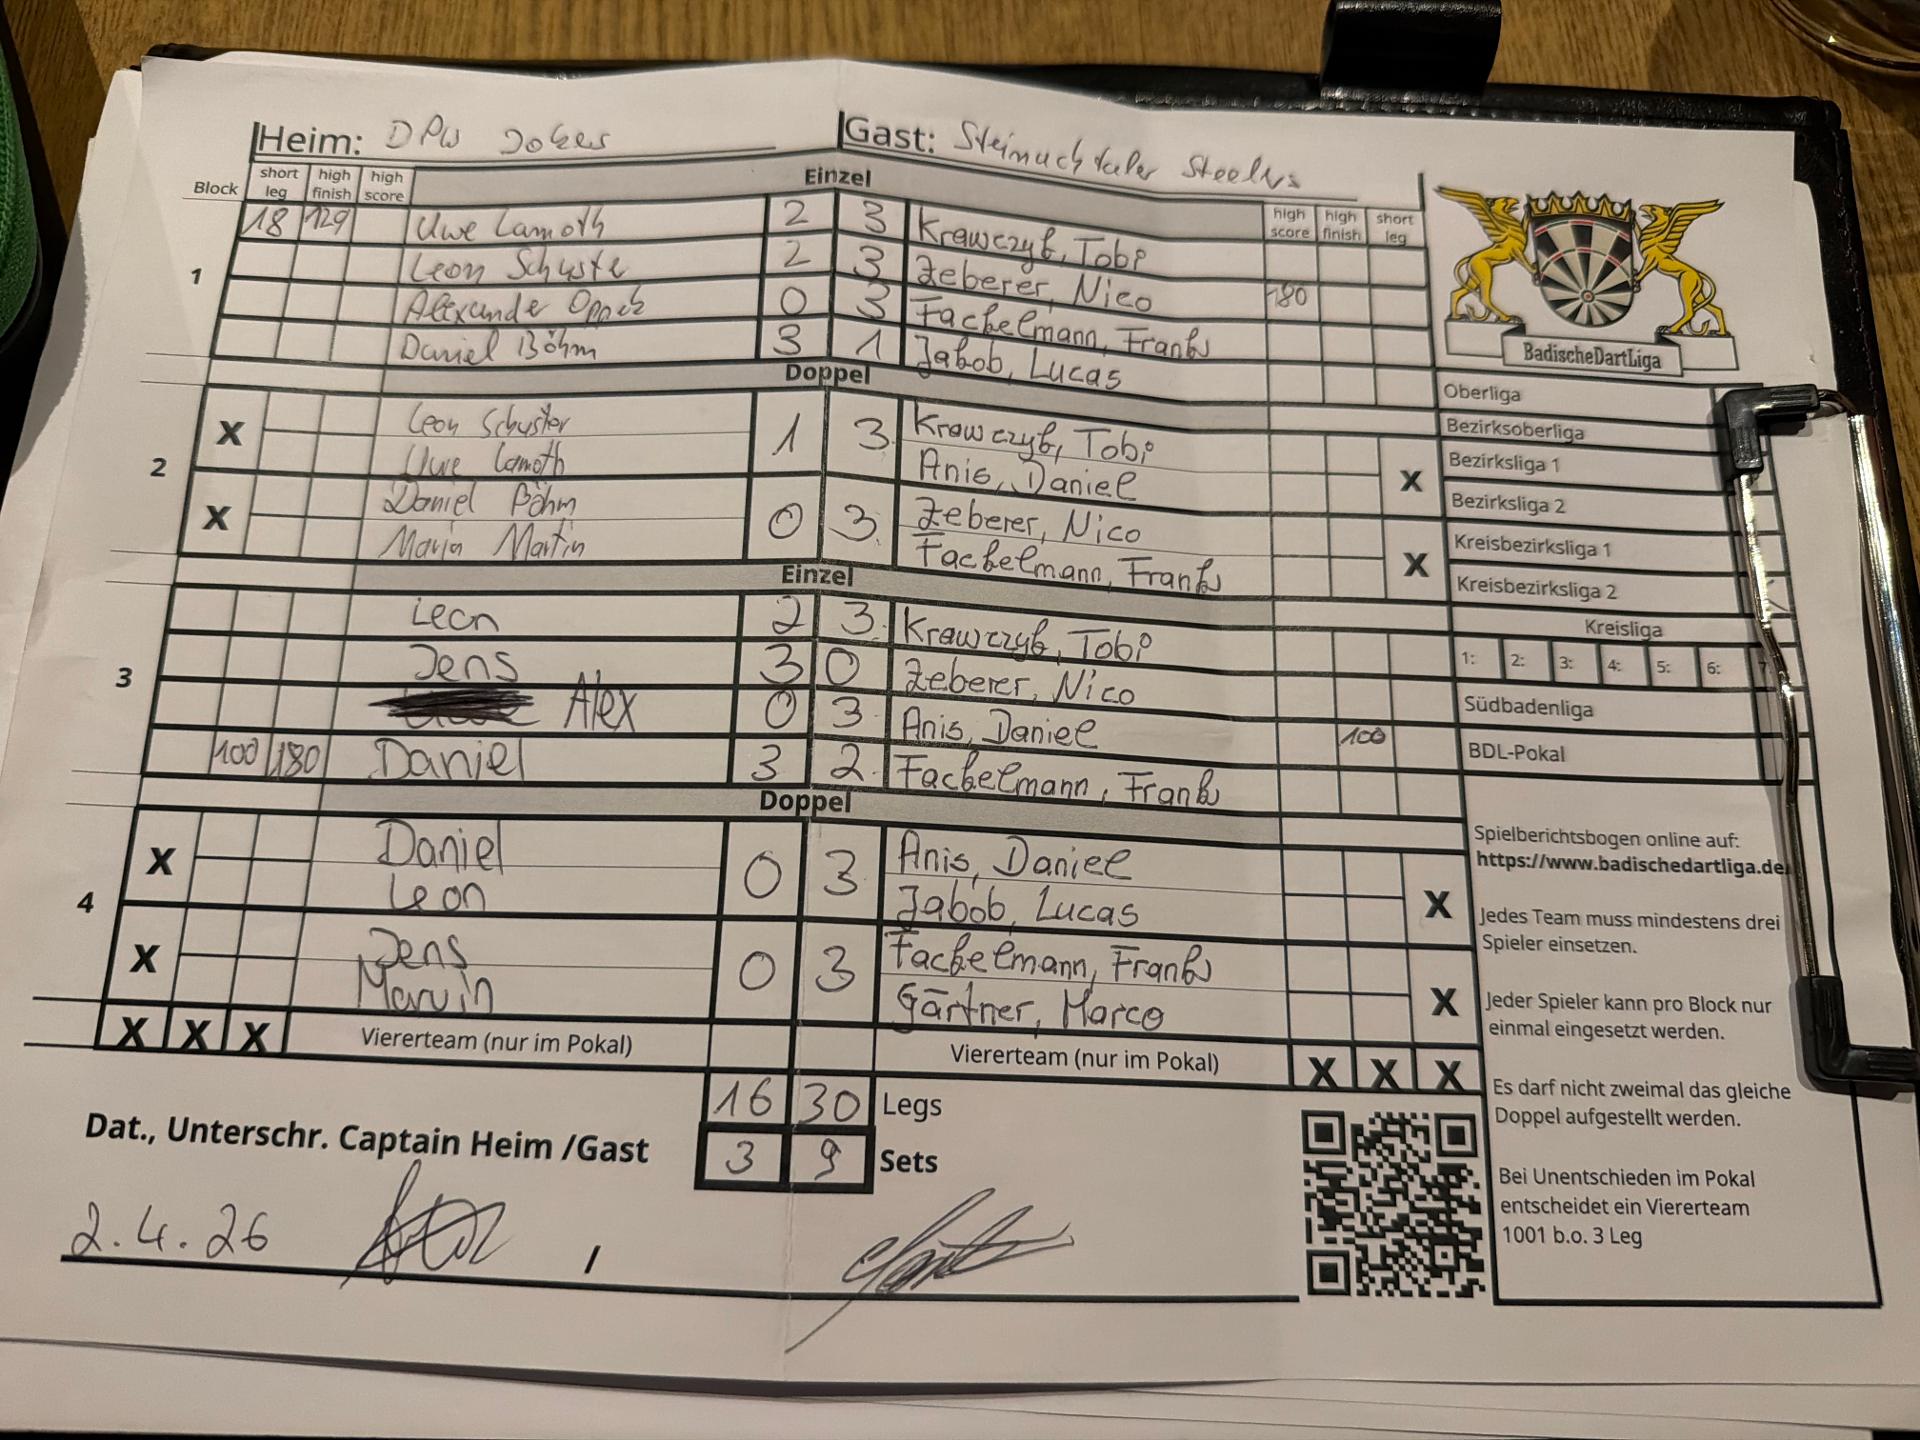 Heim: DPW Jokers Gast: Steinachtaler Steelers
Block short leg high finish high score Einzel high score high finish short leg
1
18 129 Uwe Lamoth 2 3 Krawczyk, Tobi
Leon Schuster 2 3 Zeberer, Nico
Alexander 0 3 Fackelmann, Frank 180
Daniel Böhm 3 1 Jakob, Lucas
Doppel
2
X Leon Schuster 1 3 Krawczyk, Tobi X
Uwe Lamoth Anis, Daniel
X Daniel Böhm 0 3 Zeberer, Nico X
Martin Fackelmann, Frank
Einzel
3
Leon 2 3 Krawczyk, Tobi
Jens 3 0 Zeberer, Nico
Alex 0 3 Anis, Daniel 100
100 180 Daniel 3 2 Fackelmann, Frank
Doppel
4
X Daniel 0 3 Anis, Daniel X
Leon Jakob, Lucas
X Jens 0 3 Fackelmann, Frank X
Marvin Gärtner, Marco
X X X Viererteam (nur im Pokal) Viererteam (nur im Pokal) X X X
16 30 Legs
3 9 Sets
Dat., Unterschr. Captain Heim /Gast
2.4.26 /
BadischeDartLiga
Oberliga
Bezirksoberliga
Bezirksliga 1
Bezirksliga 2
Kreisbezirksliga 1
Kreisbezirksliga 2
Kreisliga
1: 2: 3: 4: 5: 6: 7
Südbadenliga
BDL-Pokal
Spielberichtsbogen online auf:
https://www.badischedartliga.de
Jedes Team muss mindestens drei
Spieler einsetzen.
Jeder Spieler kann pro Block nur
einmal eingesetzt werden.
Es darf nicht zweimal das gleiche
Doppel aufgestellt werden.
Bei Unentschieden im Pokal
entscheidet ein Viererteam
1001 b.o. 3 Leg